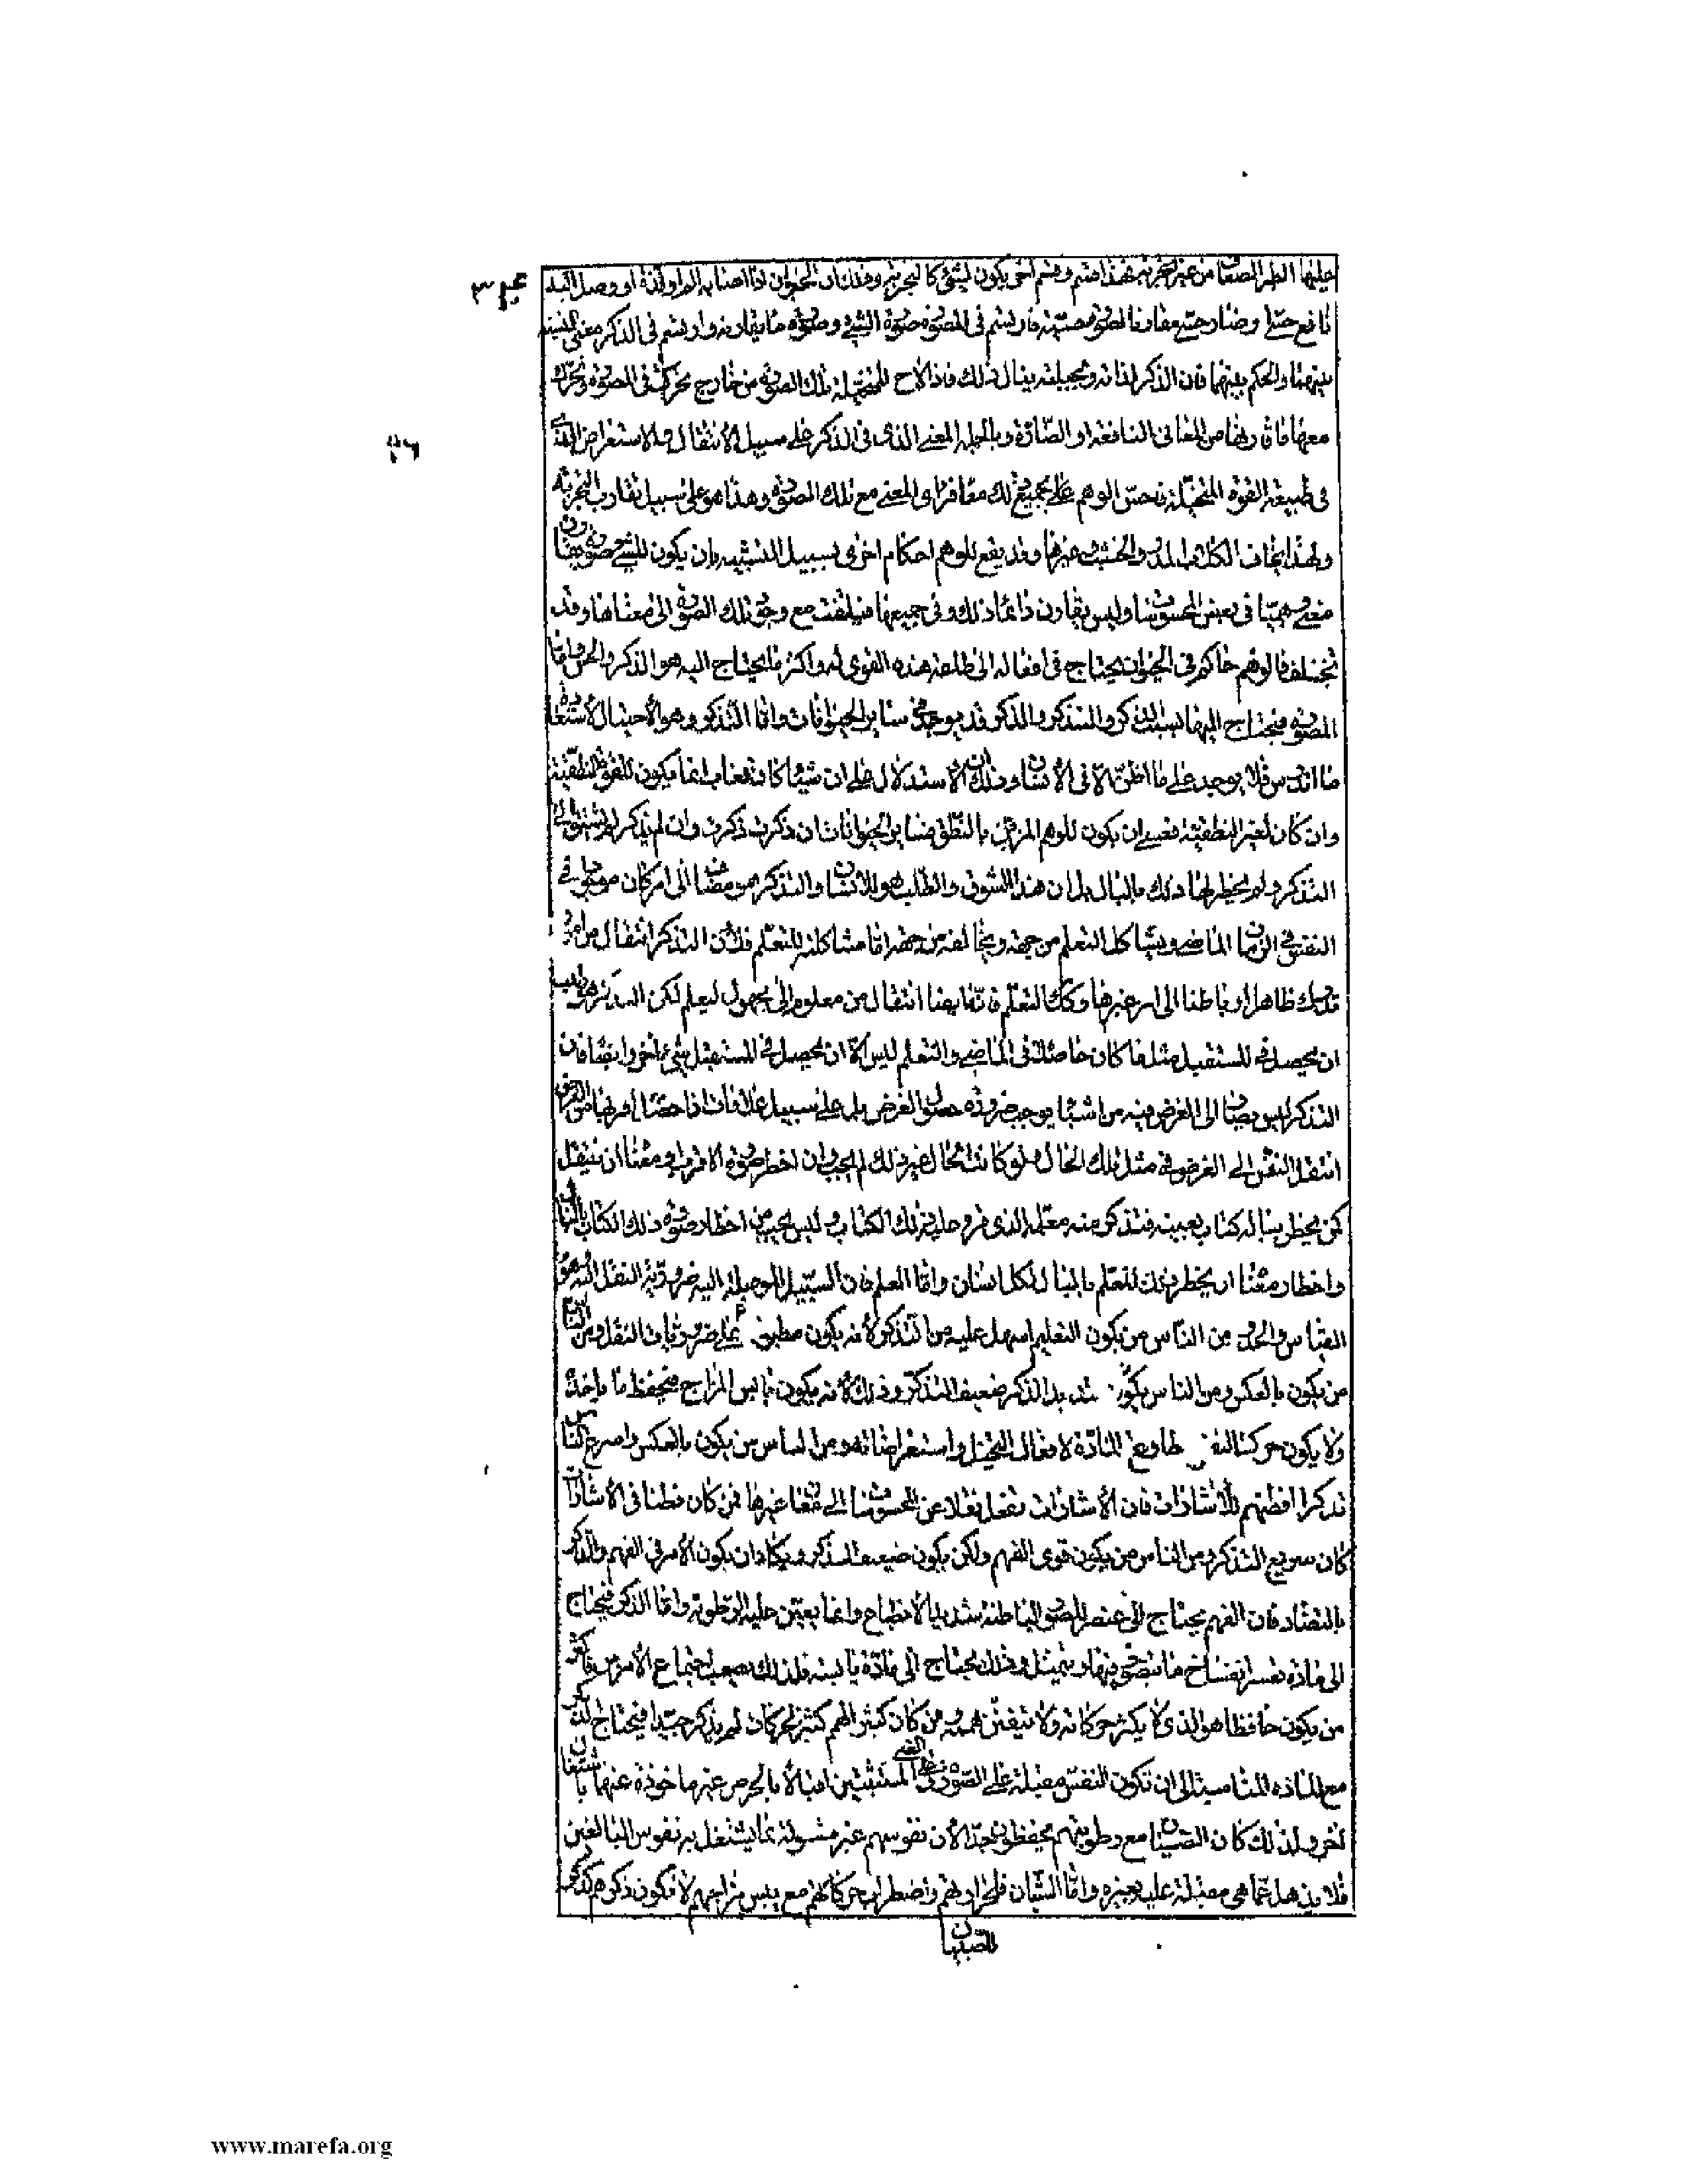 عليها الطير الصغار من غير تجربة فهذا قسم وقسم آخر يكون لشيء كالتجربة وذلك ان الحيوان اذا اصابه الم او لذة او وصل اليه
نافع حسى او ضار حسى مقارنا لصورة حسية فارتسم في المصورة صورة الشيء وصورة ما يقارنه وارتسم في الذكر معنى النسبة
بينهما والحكم بينهما فان الذكر لذاته وبجبلته ينال ذلك فاذا لاح للمتخيلة تلك الصورة من خارج تحركت في المصورة وتحرك
معها ما قارنها من المعاني النافعة او الضارة وبالجملة المعنى الذي في الذكر على سبيل الانتقال والاستعراض الذي
في طبيعة القوة المتخيلة فاحس الوهم بجميع ذلك معا فرأى المعنى مع تلك الصورة وهذا هو على سبيل تقارب التجربة
ولهذا يخاف الكلاب المدر والخشب وغيرها وقد يقع للوهم احكام اخرى بسبيل التشبيه بان يكون للشيء صورة تقارن
معنى وهميا في بعض المحسوسات وليس يقارن دائما ذلك وفي جميعها فيلتفت مع وجود تلك الصورة الى معناها وقد
تختلف فالوهم حاكم في الحيوان يحتاج في افعاله الى طاعة هذه القوى له واكثر ما يحتاج اليه هو الذكر والحس واما
المصورة فيحتاج اليها بسبب الذكر والتذكر والذكر قد يوجد في سائر الحيوانات واما التذكر وهو الاحتيال لاستعادة
ما اندرس فلا يوجد على ما اظن الا في الانسان وذلك ان الاستدلال على ان شيئا كان فغاب انما يكون للقوة النطقية
وان كان لغير النطقية فعسى ان يكون للوهم المزين بالنطق فسائر الحيوانات ان ذكرت ذكرت وان لم تذكر لم تشتق الى
التذكر ولم يخطر لها ذلك بالبال بل ان هذا الشوق والطلب هو للانسان والتذكر هو مضاف الى امر كان موجودا في
النفس في الزمان الماضي ويشاكل التعلم من جهة ويخالفه من جهة اما مشاكلته للتعلم فلان التذكر انتقال من امور
تدرك ظاهرا او باطنا الى امر غيرها وكذلك التعلم فانه ايضا انتقال من معلوم الى مجهول ليعلم لكن التذكر هو طلب
ان يحصل في المستقبل مثل ما كان حاصلا في الماضي والتعلم ليس الا ان يحصل في المستقبل شيء آخر وايضا فان
التذكر ليس يصار الى الغرض فيه من اشياء توجب ضرورة حصول الغرض بل على سبيل علامات اذا حصل اقربها من الغرض
انتقل النفس الى الغرض في مثل تلك الحال ولو كانت الحال غير ذلك لم يجب وان اخطر صورة الاقرب او معناه ان ينتقل
كمن يخطر بباله كتاب بعينه فتذكر منه معلمه الذي قرء عليه ذلك الكتاب وليس يجب من اخطار صورة ذلك الكتاب بالبال
واخطار معناه ان يخطر ذلك المعلم بالبال لكل انسان واما العلم فان السبيل الموصلة اليه ضرورية النقل اليه وهو
القياس والحد ومن الناس من يكون التعليم اسهل عليه من التذكر لانه يكون مطبوعا على ضروريات النقل ومن الناس
من يكون بالعكس ومن الناس يكون شديد الذكر ضعيف التذكر وذلك لانه يكون يابس المزاج فيحفظ ما يأخذه
ولا يكون حركة النفس مطاوع المادة لافعال التخيل واستعراضاته ومن الناس من يكون بالعكس واسرع الناس
تذكرا افطنهم للاشارات فان الاشارات تفعل نقلا عن المحسوسات الى معان غيرها فمن كان فطنا في الاشارات
كان سريع التذكر ومن الناس من يكون قوى الفهم ولكن يكون ضعيف الذكر ويكاد ان يكون الامر في الفهم والذكر
بالتضاد فان الفهم يحتاج الى عنصر للصور الباطنة شديد الانطباع وانما يعين عليه الرطوبة واما الذكر فيحتاج
الى مادة يعسر انفساخ ما يتصور فيها ويتمثل وذلك يحتاج الى مادة يابسة فلذلك يصعب اجتماع الامرين فاكثر
من يكون حافظا هو الذي لا يكثر حركاته ولا يتفنن هممه ومن كان كثير الهمم كثير الحركات لم يذكر جيدا فيحتاج الذكر
مع المادة المناسبة الى ان تكون النفس مقبلة على الصورة وعلى المعنى المستثبتين اقبالا بالحرص غير ماخوذة عنهما باشتغال
آخر ولذلك كان الصبيان مع رطوبتهم يحفظون جدا لان نفوسهم غير مشغولة بما يشتغل به نفوس البالغين
فلا يذهل عما هي مقبلة عليه بغيره واما الشبان فلحرارتهم واضطراب حركاتهم مع يبس مزاجهم لا يكون ذكرهم كذكر
الصبيان
www.marefa.org